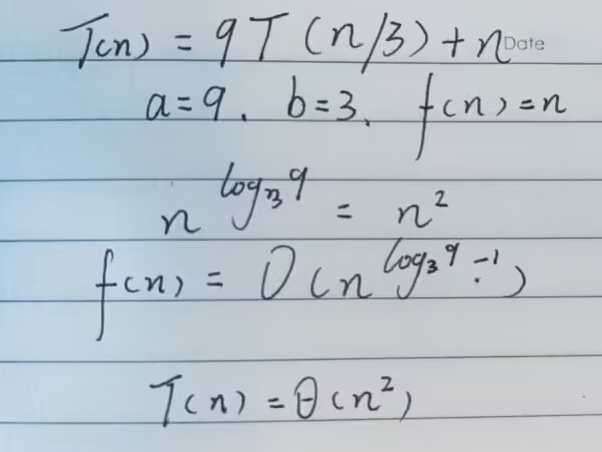 T(n) = 9T(n/3)+n Date
a=9, b=3, f(n)=n
n^{log_3 9} = n^2
f(n) = O(n^{log_3 9 -1})
T(n) = Θ(n^2)